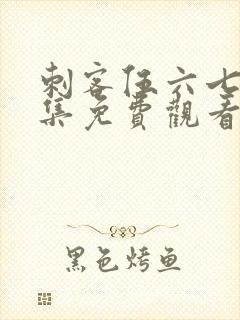 刺客伍六七
集免費觀看
黑色烤鱼